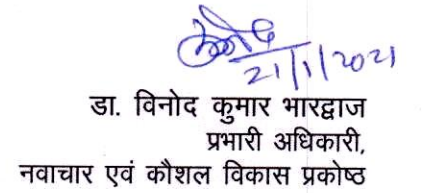 21/1/2021
डा. विनोद कुमार भारद्वाज
प्रभारी अधिकारी,
नवाचार एवं कौशल विकास प्रकोष्ठ